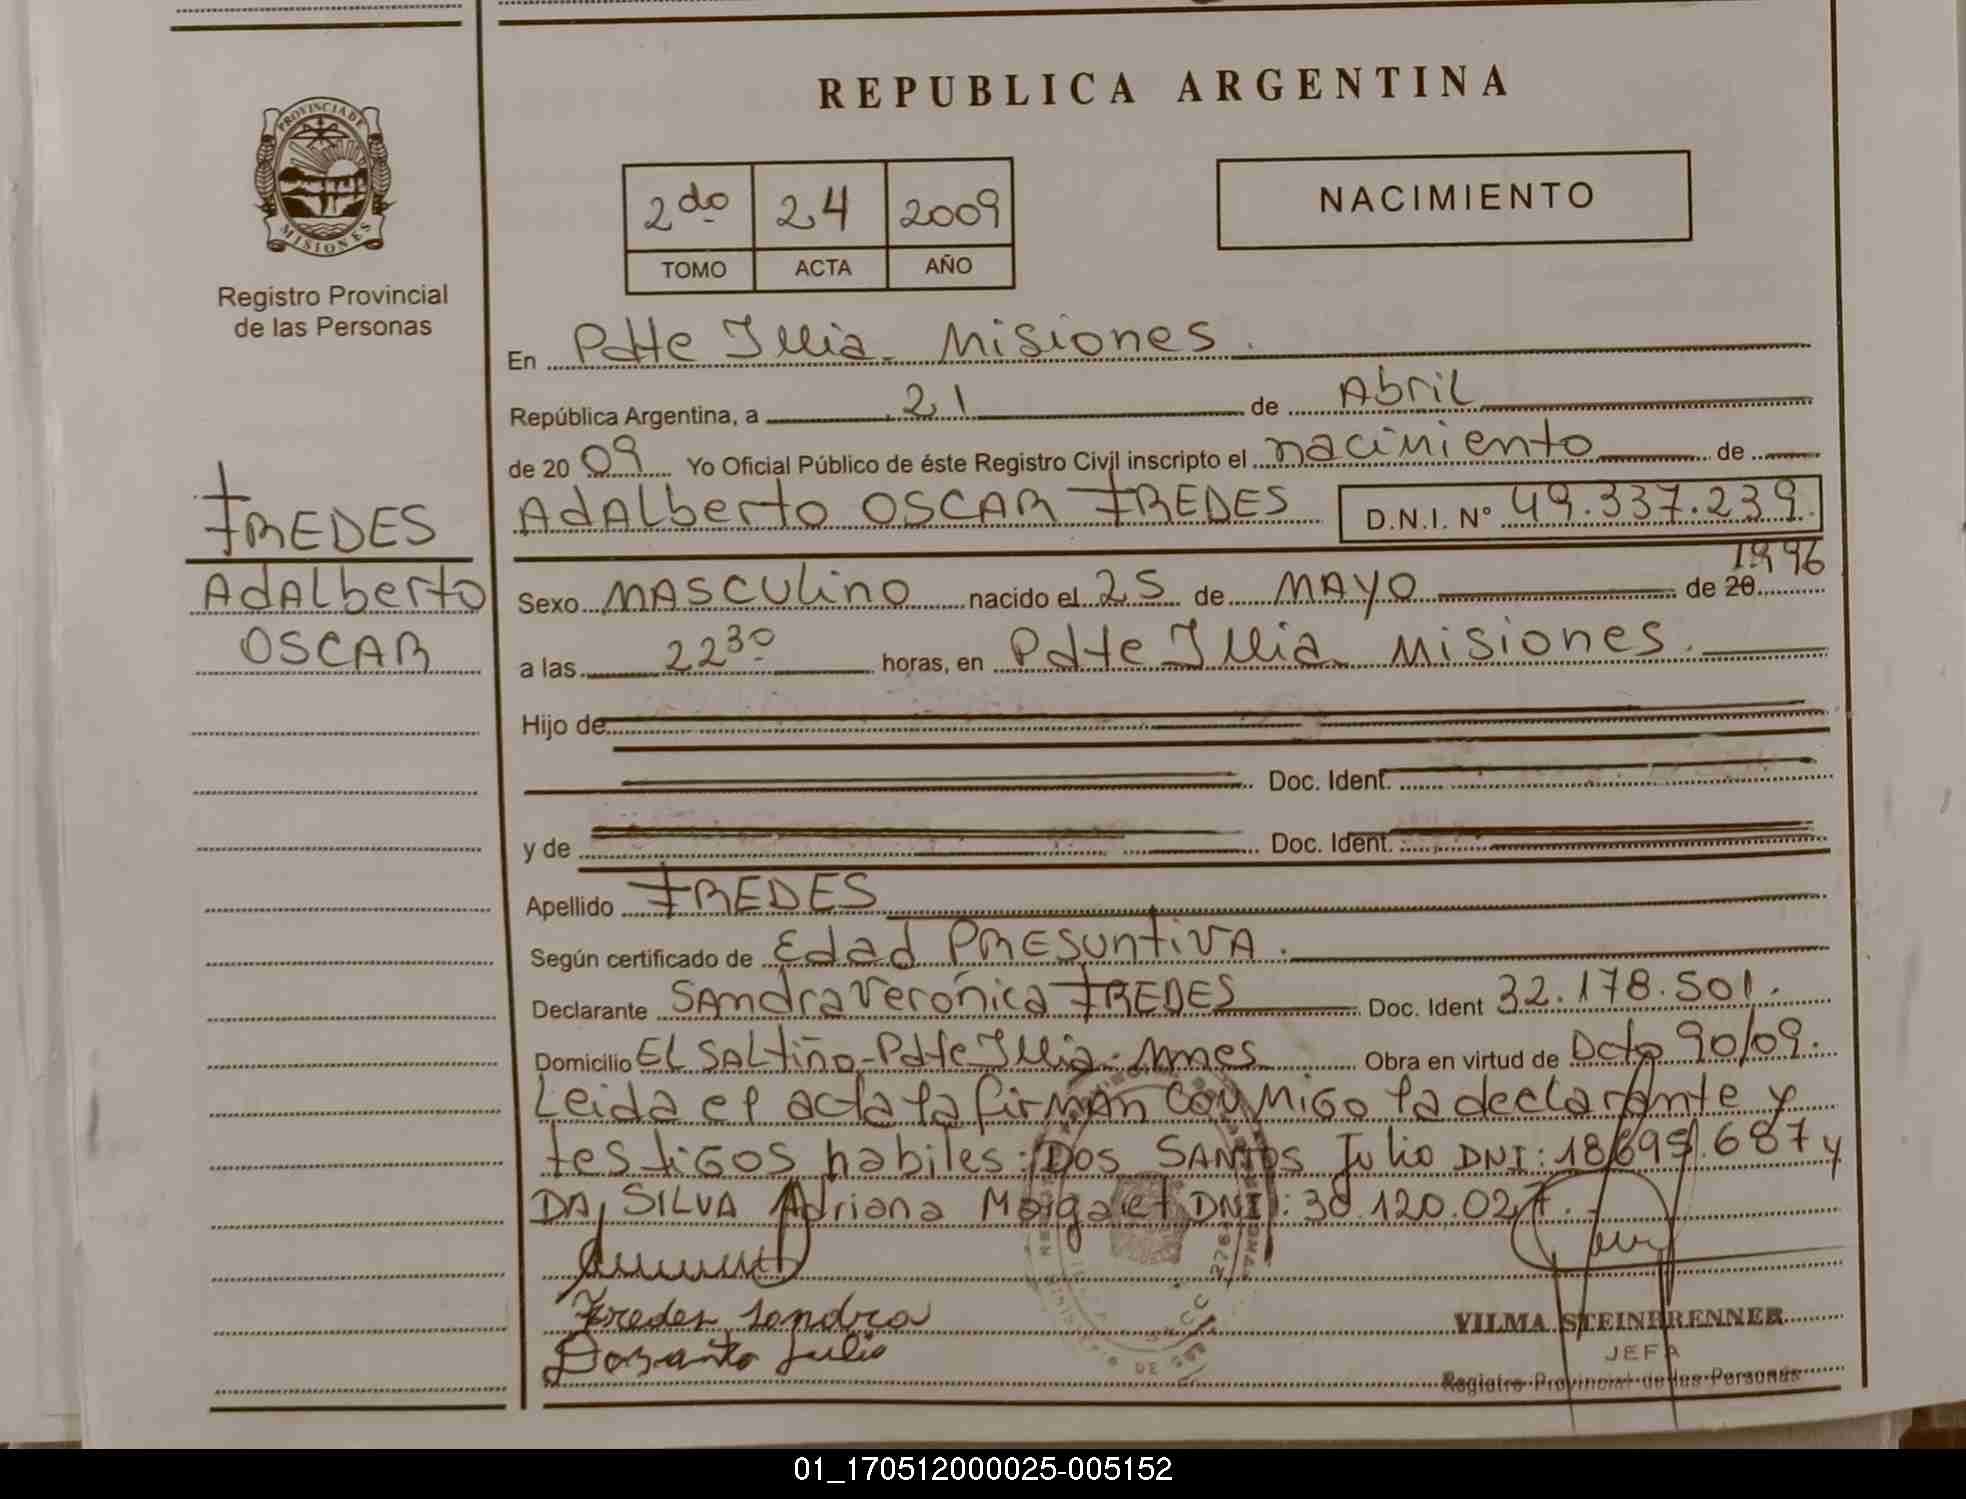 REPUBLICA ARGENTINA
PROVINCIA DE MISIONES
Registro Provincial
de las Personas
2do 24 2009
TOMO ACTA AÑO
NACIMIENTO
En Pdte Illia - Misiones.
República Argentina, a 21 de Abril
de 2009 Yo Oficial Público de éste Registro Civil inscripto el nacimiento de
Adalberto OSCAR FREDES D.N.I. Nº 49.337.239
FREDES
Adalberto
OSCAR
Sexo MASCULINO nacido el 25 de MAYO de 20 1996
a las 22 30 horas, en Pdte Illia - Misiones.
Hijo de
Doc. Ident.
y de Doc. Ident.
Apellido FREDES
Según certificado de Edad PRESUNTIVA.
Declarante SANDRA Verónica FREDES Doc. Ident 32.178.501.
Domicilio EL SALTIÑO - Pdte Illia - Mnes Obra en virtud de Dcto 90/09.
Leida el acta la firman conmigo la declarante y
testigos habiles: DOS SANTOS Julio DNI: 18.695.687 y
DA SILVA Adriana Margaret DNI: 30.120.027.
Fredes Sandra
Dosanto Julio
VILMA STEINBRENNER
JEFA
Registro Provincial de las Personas
01_170512000025-005152